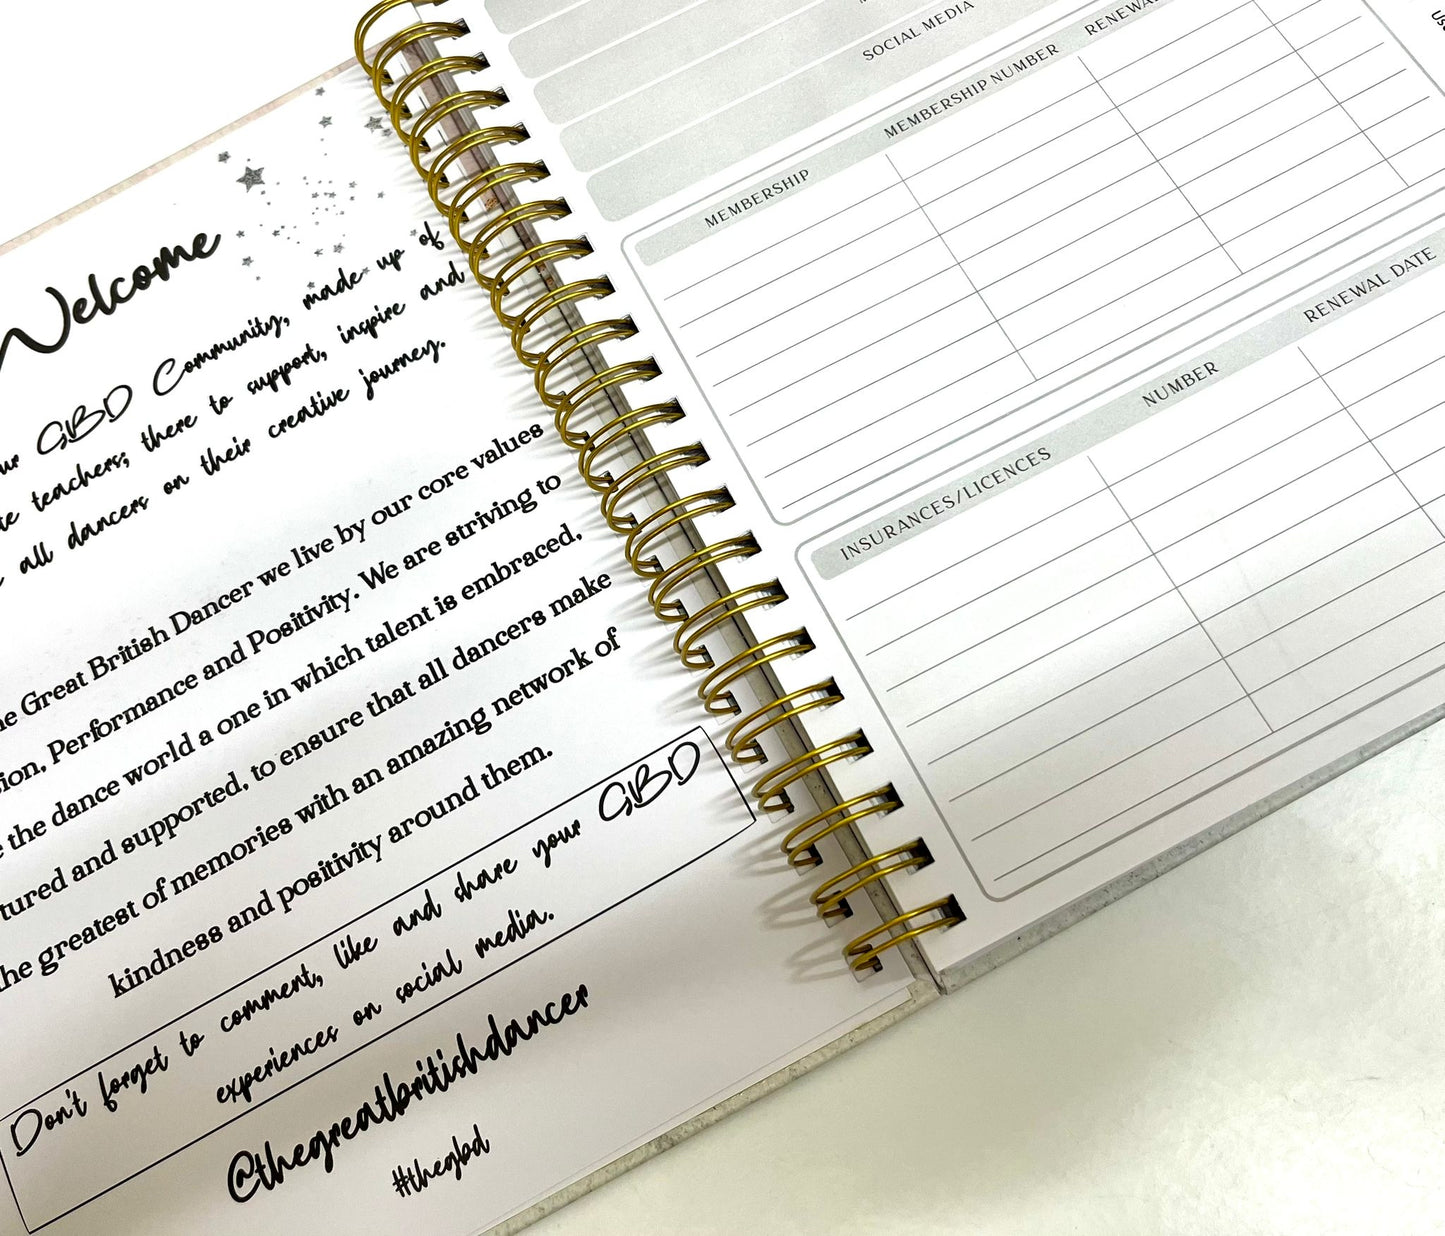 Welcome
GBD Community, made up of
teachers; there to support, inspire and
all dancers on their creative journey.
Great British Dancer we live by our core values
Performance and Positivity. We are striving to
the dance world a one in which talent is embraced,
and supported, to ensure that all dancers make
the greatest of memories with an amazing network of
kindness and positivity around them.
Don't forget to comment, like and share your GBD
experiences on social media.
@thegreatbritishdancer
#thegbd
SOCIAL MEDIA
MEMBERSHIP MEMBERSHIP NUMBER RENEWAL
INSURANCES/LICENCES NUMBER RENEWAL DATE